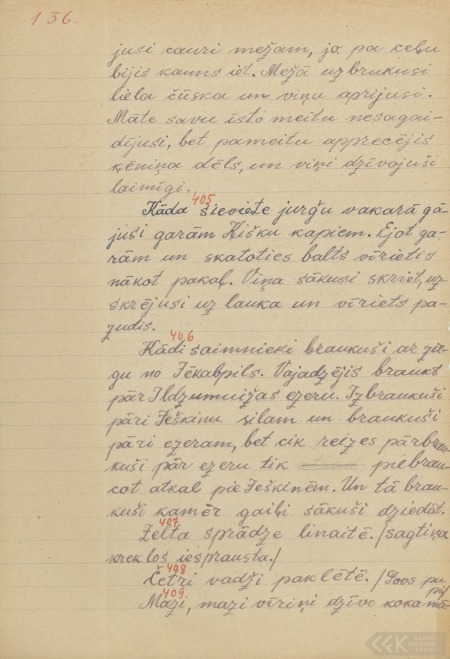 136.
jusi cauri mežam, jo pa ceļu
bijis kauns iet. Mežā uzbrukusi
liela čūska un viņu aprijusi.
Māte savu īsto meitu nesagai-
dījusi, bet pameitu apprecējis
ķēniņa dēls, un viņi dzīvojuši
laimīgi.
405
Kāda sieviete jurģu vakarā gā-
jusi garām Kišku kapiem. Ejot ga-
rām un skatoties balts vīrietis
nākot pakaļ. Viņa sākusi skriet, uz-
skrējusi uz lauka un vīriets pa-
zudis.
406
Kādi saimnieki braukuši ar zir-
gu no Jēkabpils. Vajadzējis braukt
pār Ildzumuižas ezeru. Izbraukuši
pāri Ješkinu silam un braukuši
pāri ezeram, bet cik reizes pārbrau-
kuši pār ezeru tik piebrau-
cot atkal pie Ješkinēm. Un tā brau-
kuši kamēr gaiļi sākuši dziedāt.
407
Zelta sprādze linaitē. /sagtiņa
kreklos iesprausta./
408
Četri vadži paklētē. /Govs pu-
pi/
409.
Mazi, mazi vīriņi dzīvo koka mā-